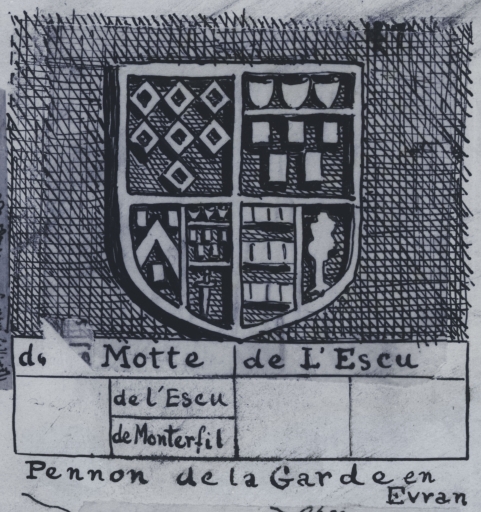 de Motte de L'Escu
de l'Escu
de Monterfil
Pennon de la Garde en
Evran